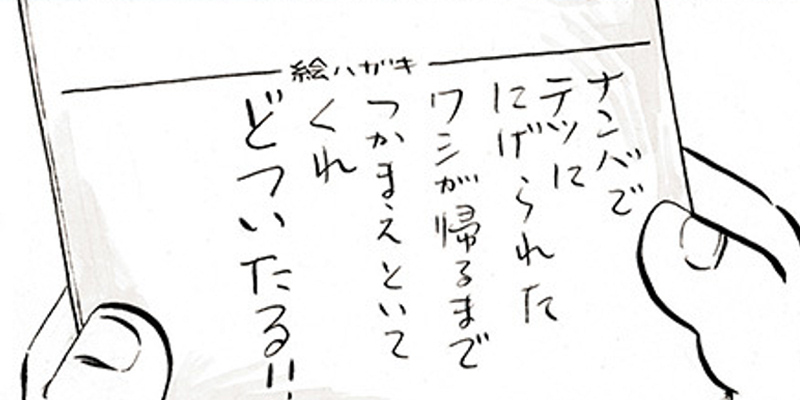 絵ハガキ
ナンバで
テツに
にげられた
ワシが帰るまで
つかまえといて
くれ
どついたる!!